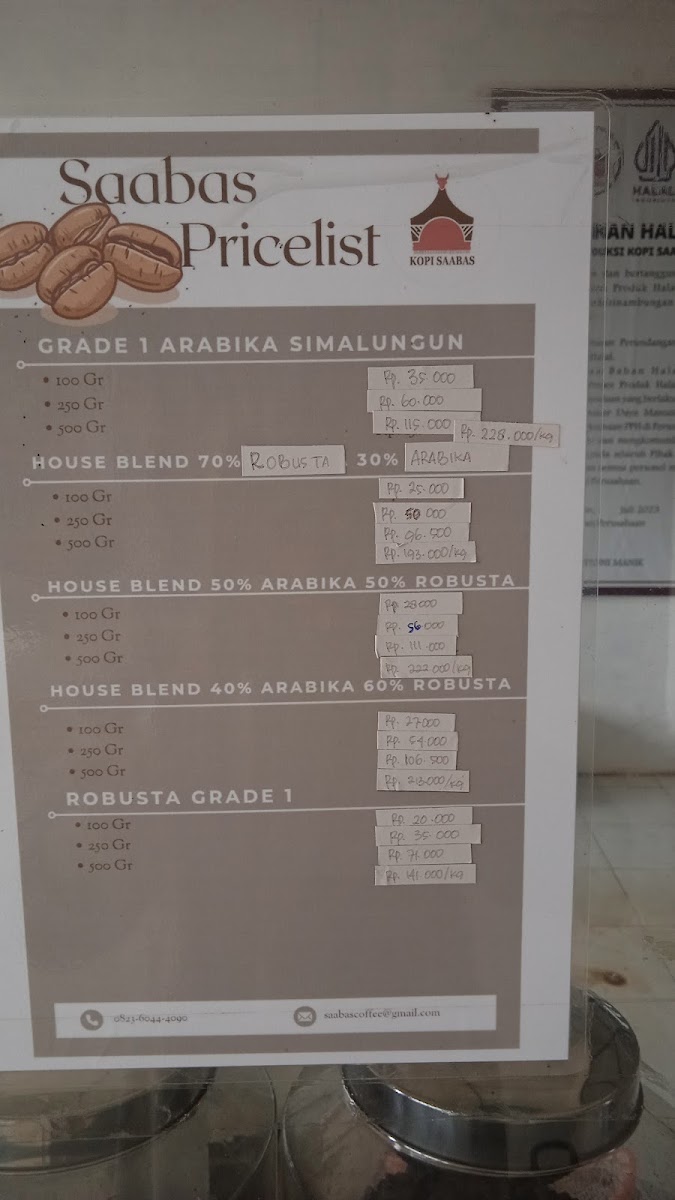 Saabas
Pricelist
KOPI SAABAS
GRADE 1 ARABIKA SIMALUNGUN
• 100 Gr Rp. 35.000
• 250 Gr Rp. 60.000
• 500 Gr Rp. 115.000
Rp. 228.000/kg
HOUSE BLEND 70% ROBUSTA 30% ARABIKA
• 100 Gr Rp. 25.000
• 250 Gr Rp. 50.000
• 500 Gr Rp. 96.500
Rp. 193.000/kg
HOUSE BLEND 50% ARABIKA 50% ROBUSTA
• 100 Gr Rp 28000
• 250 Gr Rp. 56.000
• 500 Gr Rp. 111.000
Rp. 222.000/kg
HOUSE BLEND 40% ARABIKA 60% ROBUSTA
• 100 Gr Rp. 27000
• 250 Gr Rp. 54000
• 500 Gr Rp. 106.500
Rp. 213.000/kg
ROBUSTA GRADE 1
• 100 Gr Rp. 20.000
• 250 Gr Rp. 35.000
• 500 Gr Rp. 71.000
Rp. 141.000/kg
0823-6044-4090
saabascoffee@gmail.com
HALAL
Produk
Juli 2023
Perusahaan
MANIK